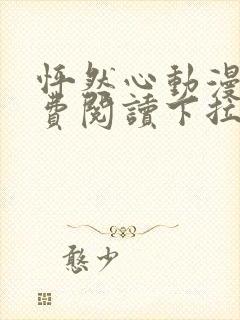 怦然心動漫
費閱讀下拉
憨少